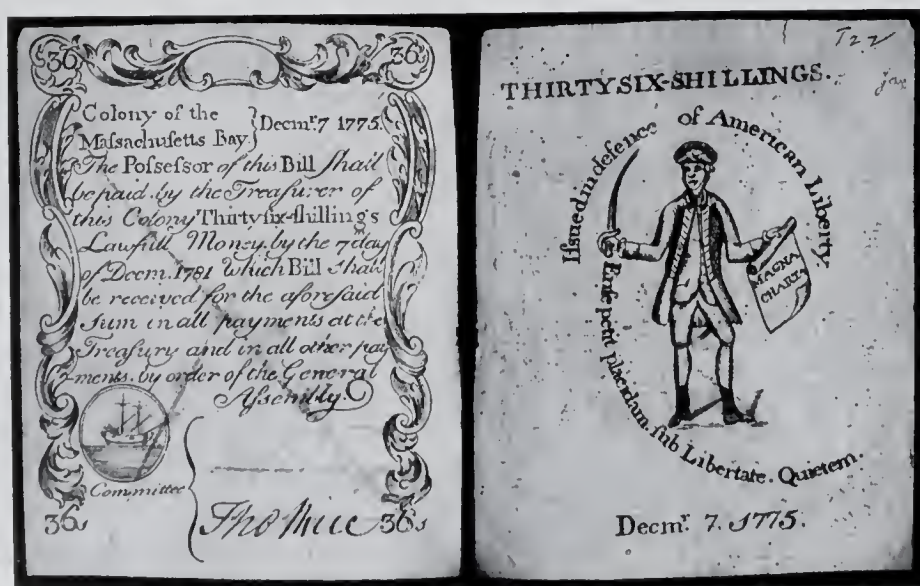 36s 36s
Colony of the
Maſsachuſetts Bay } Decmr. 7 1775.
The Poſseſsor of this Bill ſhall
be paid by the Treaſurer of
this Colony Thirtyſix-ſhillings
Lawfull Money by the 7 day
of Decm. 1781 which Bill ſhall
be received for the aforeſaid
ſum in all payments at the
Treaſury and in all other pay
ments. by order of the General
Aſsembly.
Committee
36s 36s
T22
THIRTYSIX-SHILLINGS.
Iſsued in defence of American Liberty.
MAGNA
CHARTA
Enſe petit placidam, ſub Libertate. Quietem.
Decmr. 7. 1775.